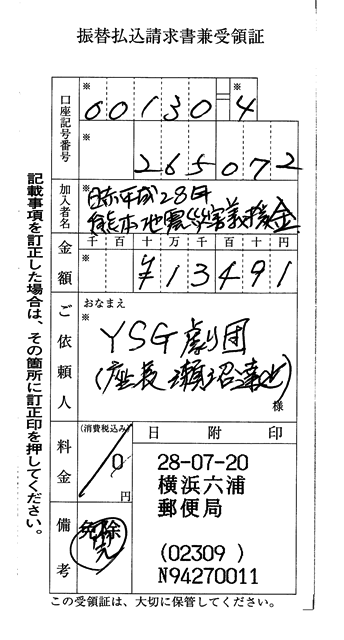 振替払込請求書兼受領証
口座記号番号
※ 00130 = 4
※ 265072
加入者名
※ 日赤平成28年
熊本地震災害義援金
金額
千 百 十 万 千 百 十 円
※ ¥13491
ご依頼人
おなまえ
※
YSG劇団
(座長
様
料金
(消費税込み)
0
円
日附印
28-07-20
横浜六浦
郵便局
(02309 )
N94270011
備考
免除
この受領証は、大切に保管してください。
記載事項を訂正した場合は、その箇所に訂正印を押してください。